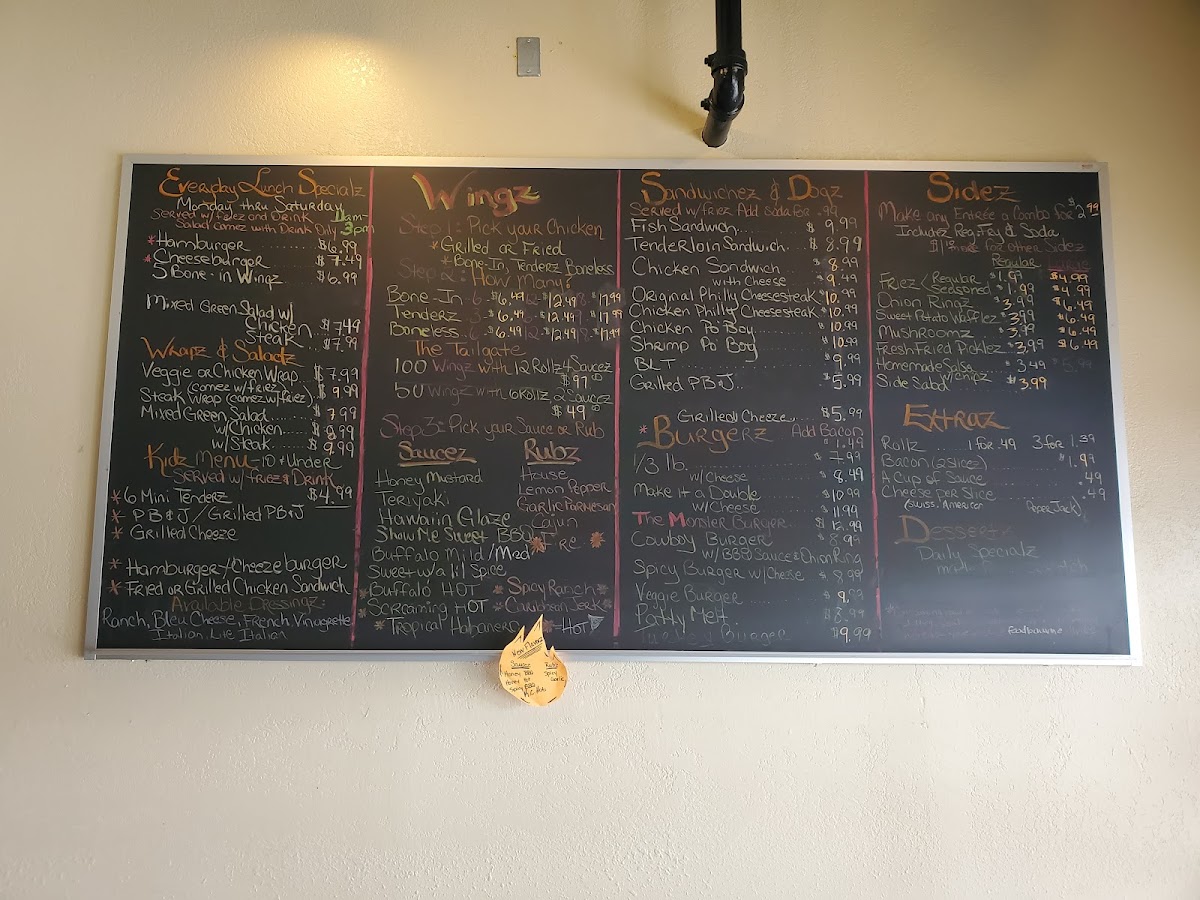 Everyday Lunch Specialz
Monday thru Saturday
Served w/friez and Drink 11am-
Salad comez with Drink Only 3pm
*Hamburger $6.99
*Cheeseburger $7.49
5 Bone-in Wingz $6.99
Mixed Green Salad w/
Chicken $7.49
Steak $7.99
Wrapz & Saladz
Veggie or Chicken Wrap $7.99
(comez w/friez)
Steak Wrap (comez w/friez) $9.99
Mixed Green Salad $7.99
w/Chicken $8.99
w/Steak $9.99
Kidz Menu - 10 & Under
Served w/friez & Drink
*6 Mini Tenderz $4.99
*PB&J/Grilled PB&J
*Grilled Cheeze
*Hamburger/Cheezeburger
*Fried or Grilled Chicken Sandwich
Available Dressingz:
Ranch, Bleu Cheese, French Vinaigrette
Italian, Lite Italian
Wingz
Step 1: Pick your Chicken
*Grilled or Fried
*Bone-In, Tenderz, Boneless
Step 2: How Many?
Bone-In 6 $6.49 12 $12.49 18 $17.99
Tenderz 3 $6.49 $12.49 $17.99
Boneless 6 $6.49 12 $12.49 18 $17.99
The Tailgate
100 Wingz with 12 Rollz 4 Saucez
$97
50 Wingz with 6 Rollz 2 Saucez
$49
Step 3: Pick your Sauce or Rub
Saucez
Honey Mustard
Teriyaki
Hawaiin Glaze
Show Me Sweet BBQ
Buffalo Mild/Med
Sweet w/a lil Spice
*Buffalo HOT
*Screaming HOT
*Tropical Habanero
Rubz
House
Lemon Pepper
Garlic Parmesan
Cajun
Fire
*Spicy Ranch
*Caribbean Jerk
*Hot
Sandwichez & Dogz
Served w/friez Add Soda for .99
Fish Sandwich $9.99
Tenderloin Sandwich $8.99
Chicken Sandwich $8.99
with Cheese $9.49
Original Philly Cheesesteak $10.99
Chicken Philly Cheesesteak $10.99
Chicken Po'Boy $10.99
Shrimp Po'Boy $10.99
BLT $9.99
Grilled PB&J $5.99
Grilled Cheeze $5.99
*Burgerz Add Bacon
$1.49
1/3 lb. $7.99
w/Cheese $8.49
Make it a Double $10.99
w/Cheese $11.99
The Monster Burger $12.99
Cowboy Burger $8.99
w/BBQ Sauce & Onion Ring
Spicy Burger w/Cheese $8.99
Veggie Burger $9.99
Patty Melt $8.99
Turkey Burger $9.99
Sidez
Make any Entrée a Combo for $2.99
Includez Reg. Fry & Soda
for other Sidez
Regular Large
Friez/Regular $1.99 $4.99
Seasoned $1.99 $4.99
Onion Ringz $3.99 $6.49
Sweet Potato Wafflez $3.99 $6.49
Mushroomz $3.99 $6.49
Fresh Fried Picklez $3.99 $6.49
Homemade Salsa $3.49 $5.99
w/chipz
Side Salad $3.99
Extraz
Rollz 1 for .49 3 for 1.39
Bacon (2 slicez) $1.99
A Cup of Sauce .49
Cheese per Slice .49
(Swiss, American Pepper Jack)
Dessertz
Daily Specialz
New Flavorz
Saucez
Honey BBQ
Honey Hot
Spicy BBQ
Rubz
Spicy
Garlic